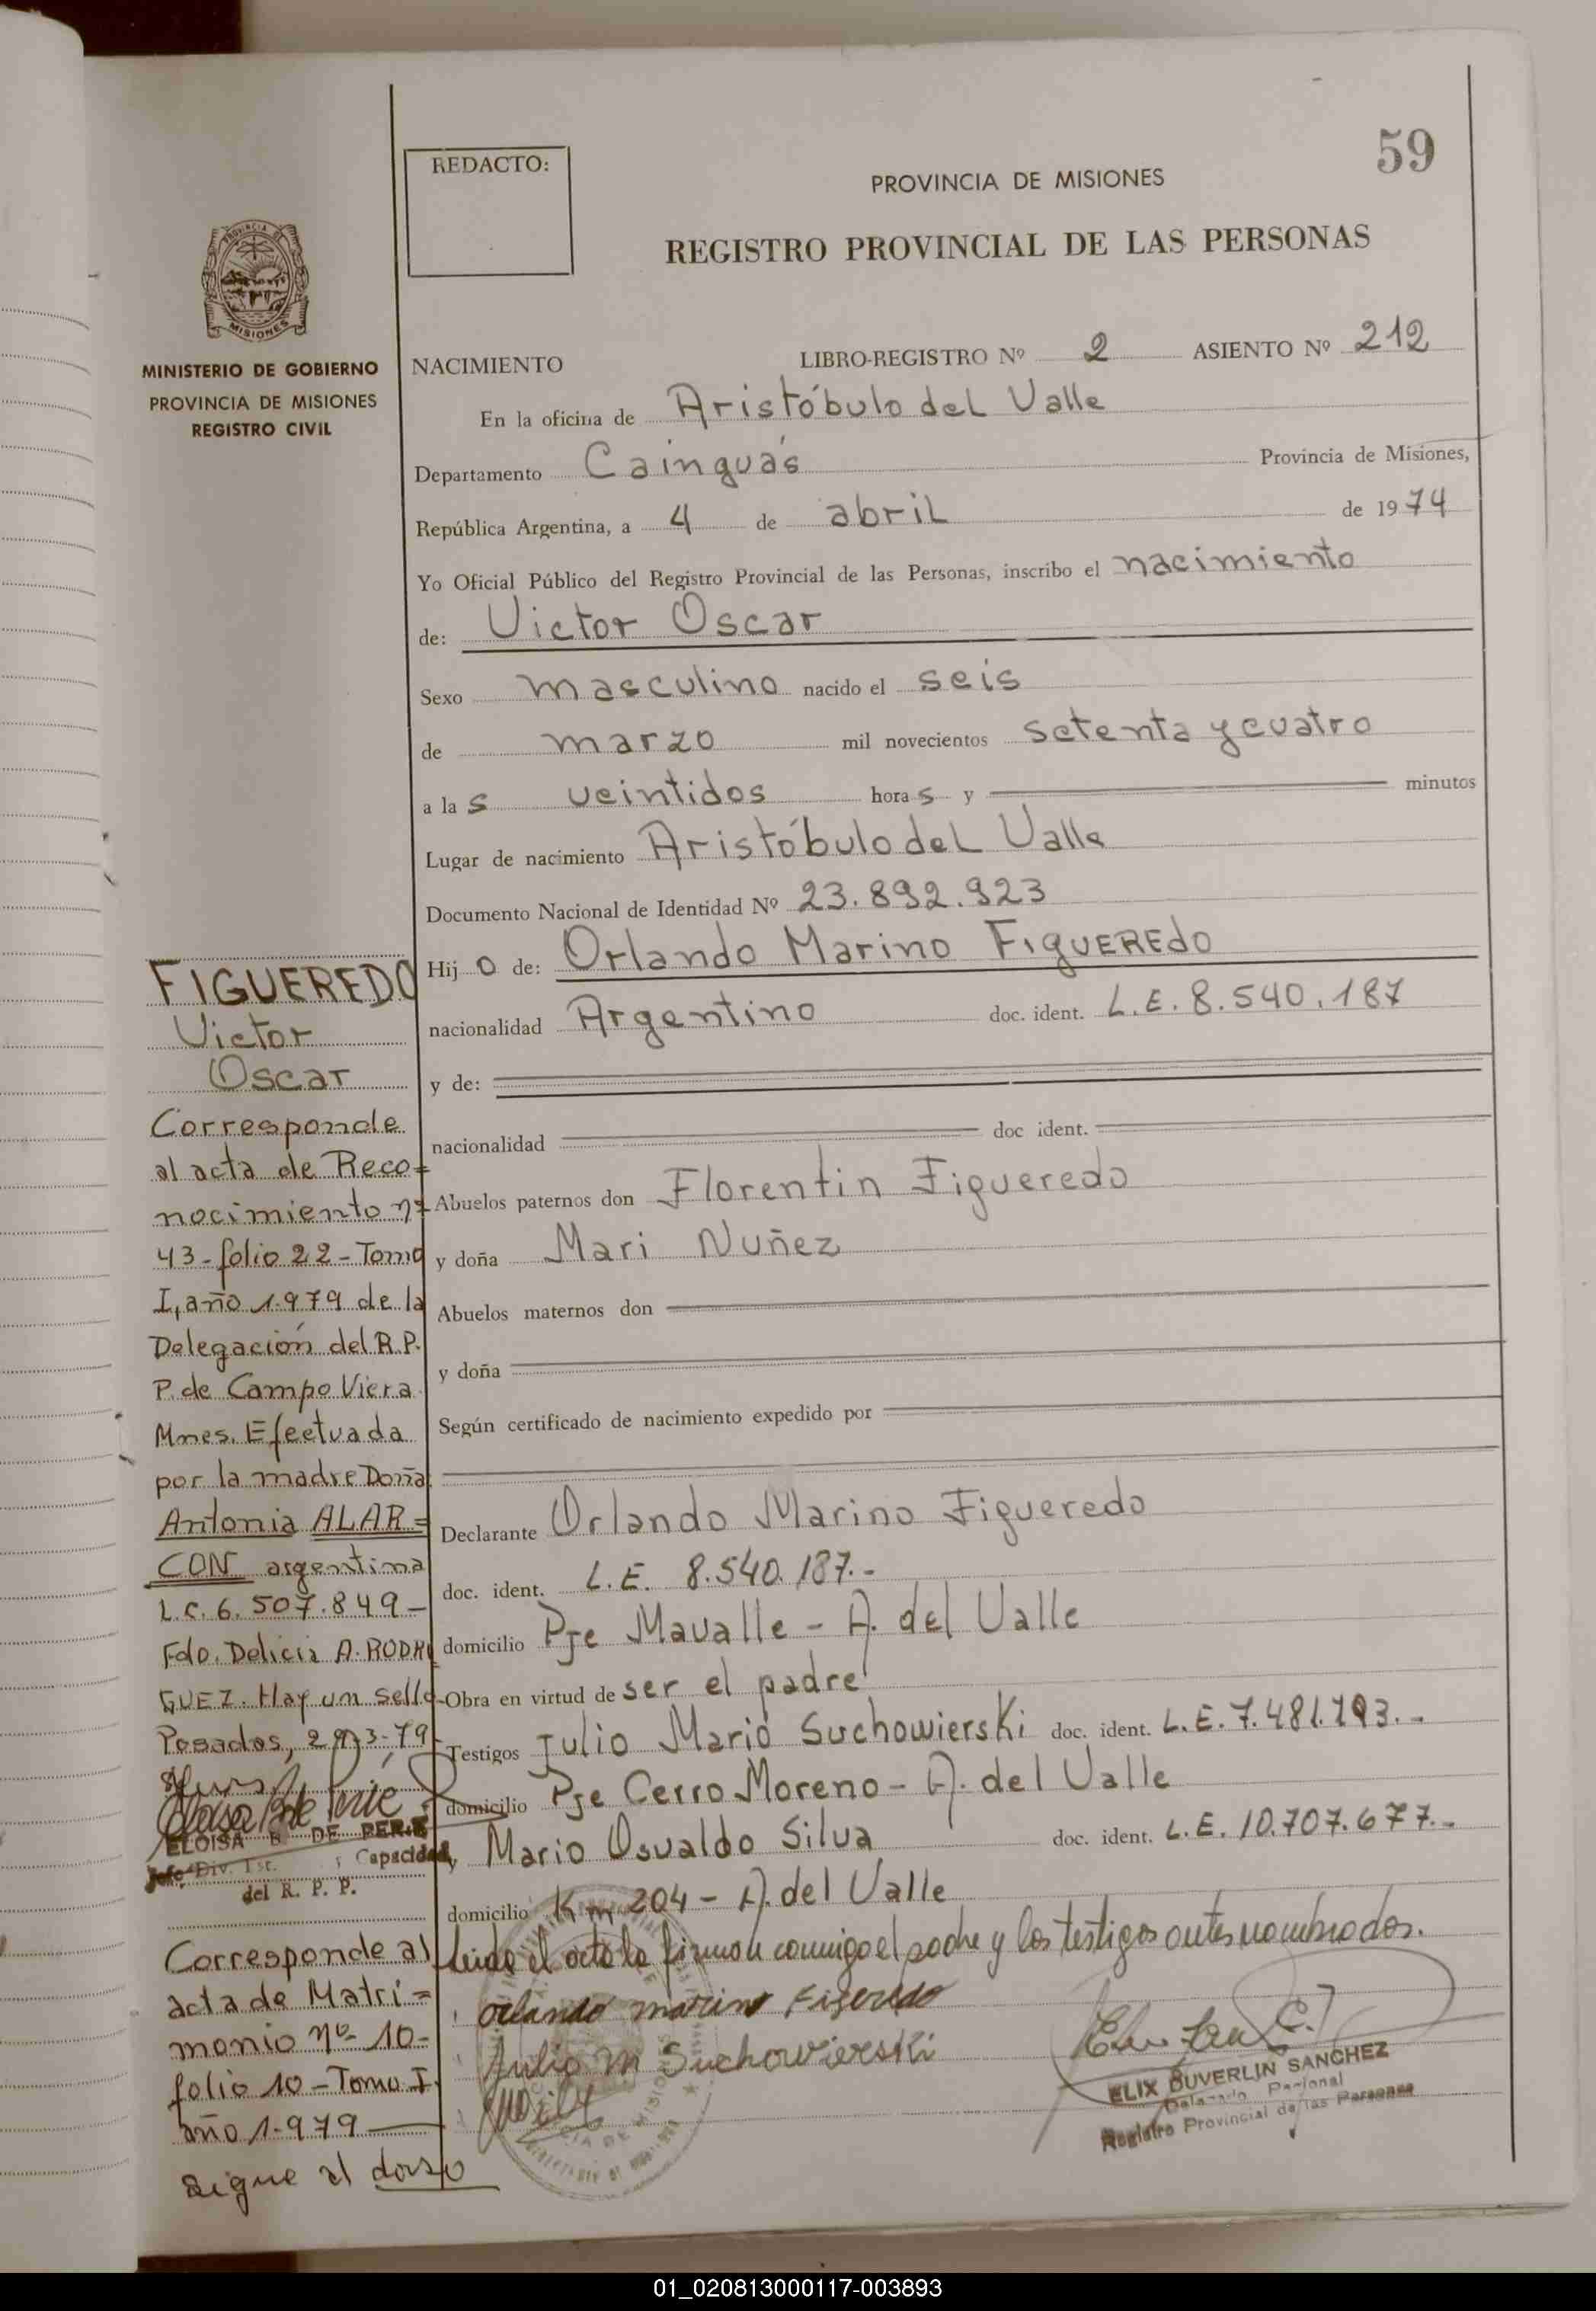 59
REDACTO:
PROVINCIA DE MISIONES
REGISTRO PROVINCIAL DE LAS PERSONAS
MISIONES
MINISTERIO DE GOBIERNO
PROVINCIA DE MISIONES
REGISTRO CIVIL
NACIMIENTO LIBRO-REGISTRO Nº 2 ASIENTO Nº 212
En la oficina de Aristóbulo del Valle
Departamento Cainguás Provincia de Misiones,
República Argentina, a 4 de abril de 1974
Yo Oficial Público del Registro Provincial de las Personas, inscribo el nacimiento
de: Victor Oscar
Sexo masculino nacido el seis
de marzo mil novecientos setenta y cuatro
a las veintidos horas y minutos
Lugar de nacimiento Aristóbulo del Valle
Documento Nacional de Identidad Nº 23.892.923
Hijo de: Orlando Marino FIGUEREdo
nacionalidad Argentino doc. ident. L.E. 8.540.187
y de:
nacionalidad doc ident.
Abuelos paternos don Florentin Figueredo
y doña Mari Nuñez
Abuelos maternos don
y doña
Según certificado de nacimiento expedido por
Declarante Orlando Marino Figueredo
doc. ident. L.E. 8.540.187.-
domicilio Pje Mavalle - A. del Valle
Obra en virtud de ser el padre
Testigos Julio Mario Suchowierski doc. ident. L.E. 7.481.193.-
domicilio Pje Cerro Moreno - A. del Valle
y Mario Osvaldo Silva doc. ident. L.E. 10.707.677.-
domicilio Km 204 - A. del Valle
leida el acta la firman conmigo el padre y los testigos antes nombrados.
orlando marino Figeredo
Julio M Suchowierski
ELIX DUVERLIN SANCHEZ
Registro Provincial de las Personas
FIGUEREDO
Victor
Oscar
Corresponde
al acta de Reco=
nocimiento nº
43-folio 22-Tomo
I, año 1.979 de la
Delegación del R.P.
P. de Campo Viera
Mnes. Efectuada
por la madre Doña
Antonia ALAR=
CON argentina
L.C. 6.507.849-
Fdo. Delicia A. RODRI
GUEZ. Hay un sello-
Posadas, 3-79
ELOISA B DE
Jefe Div. y Capacidad
del R. P. P.
Corresponde al
acta de Matri=
monio nº 10-
folio 10-Tomo I.
año 1.979
Sigue al dorso
01_020813000117-003893